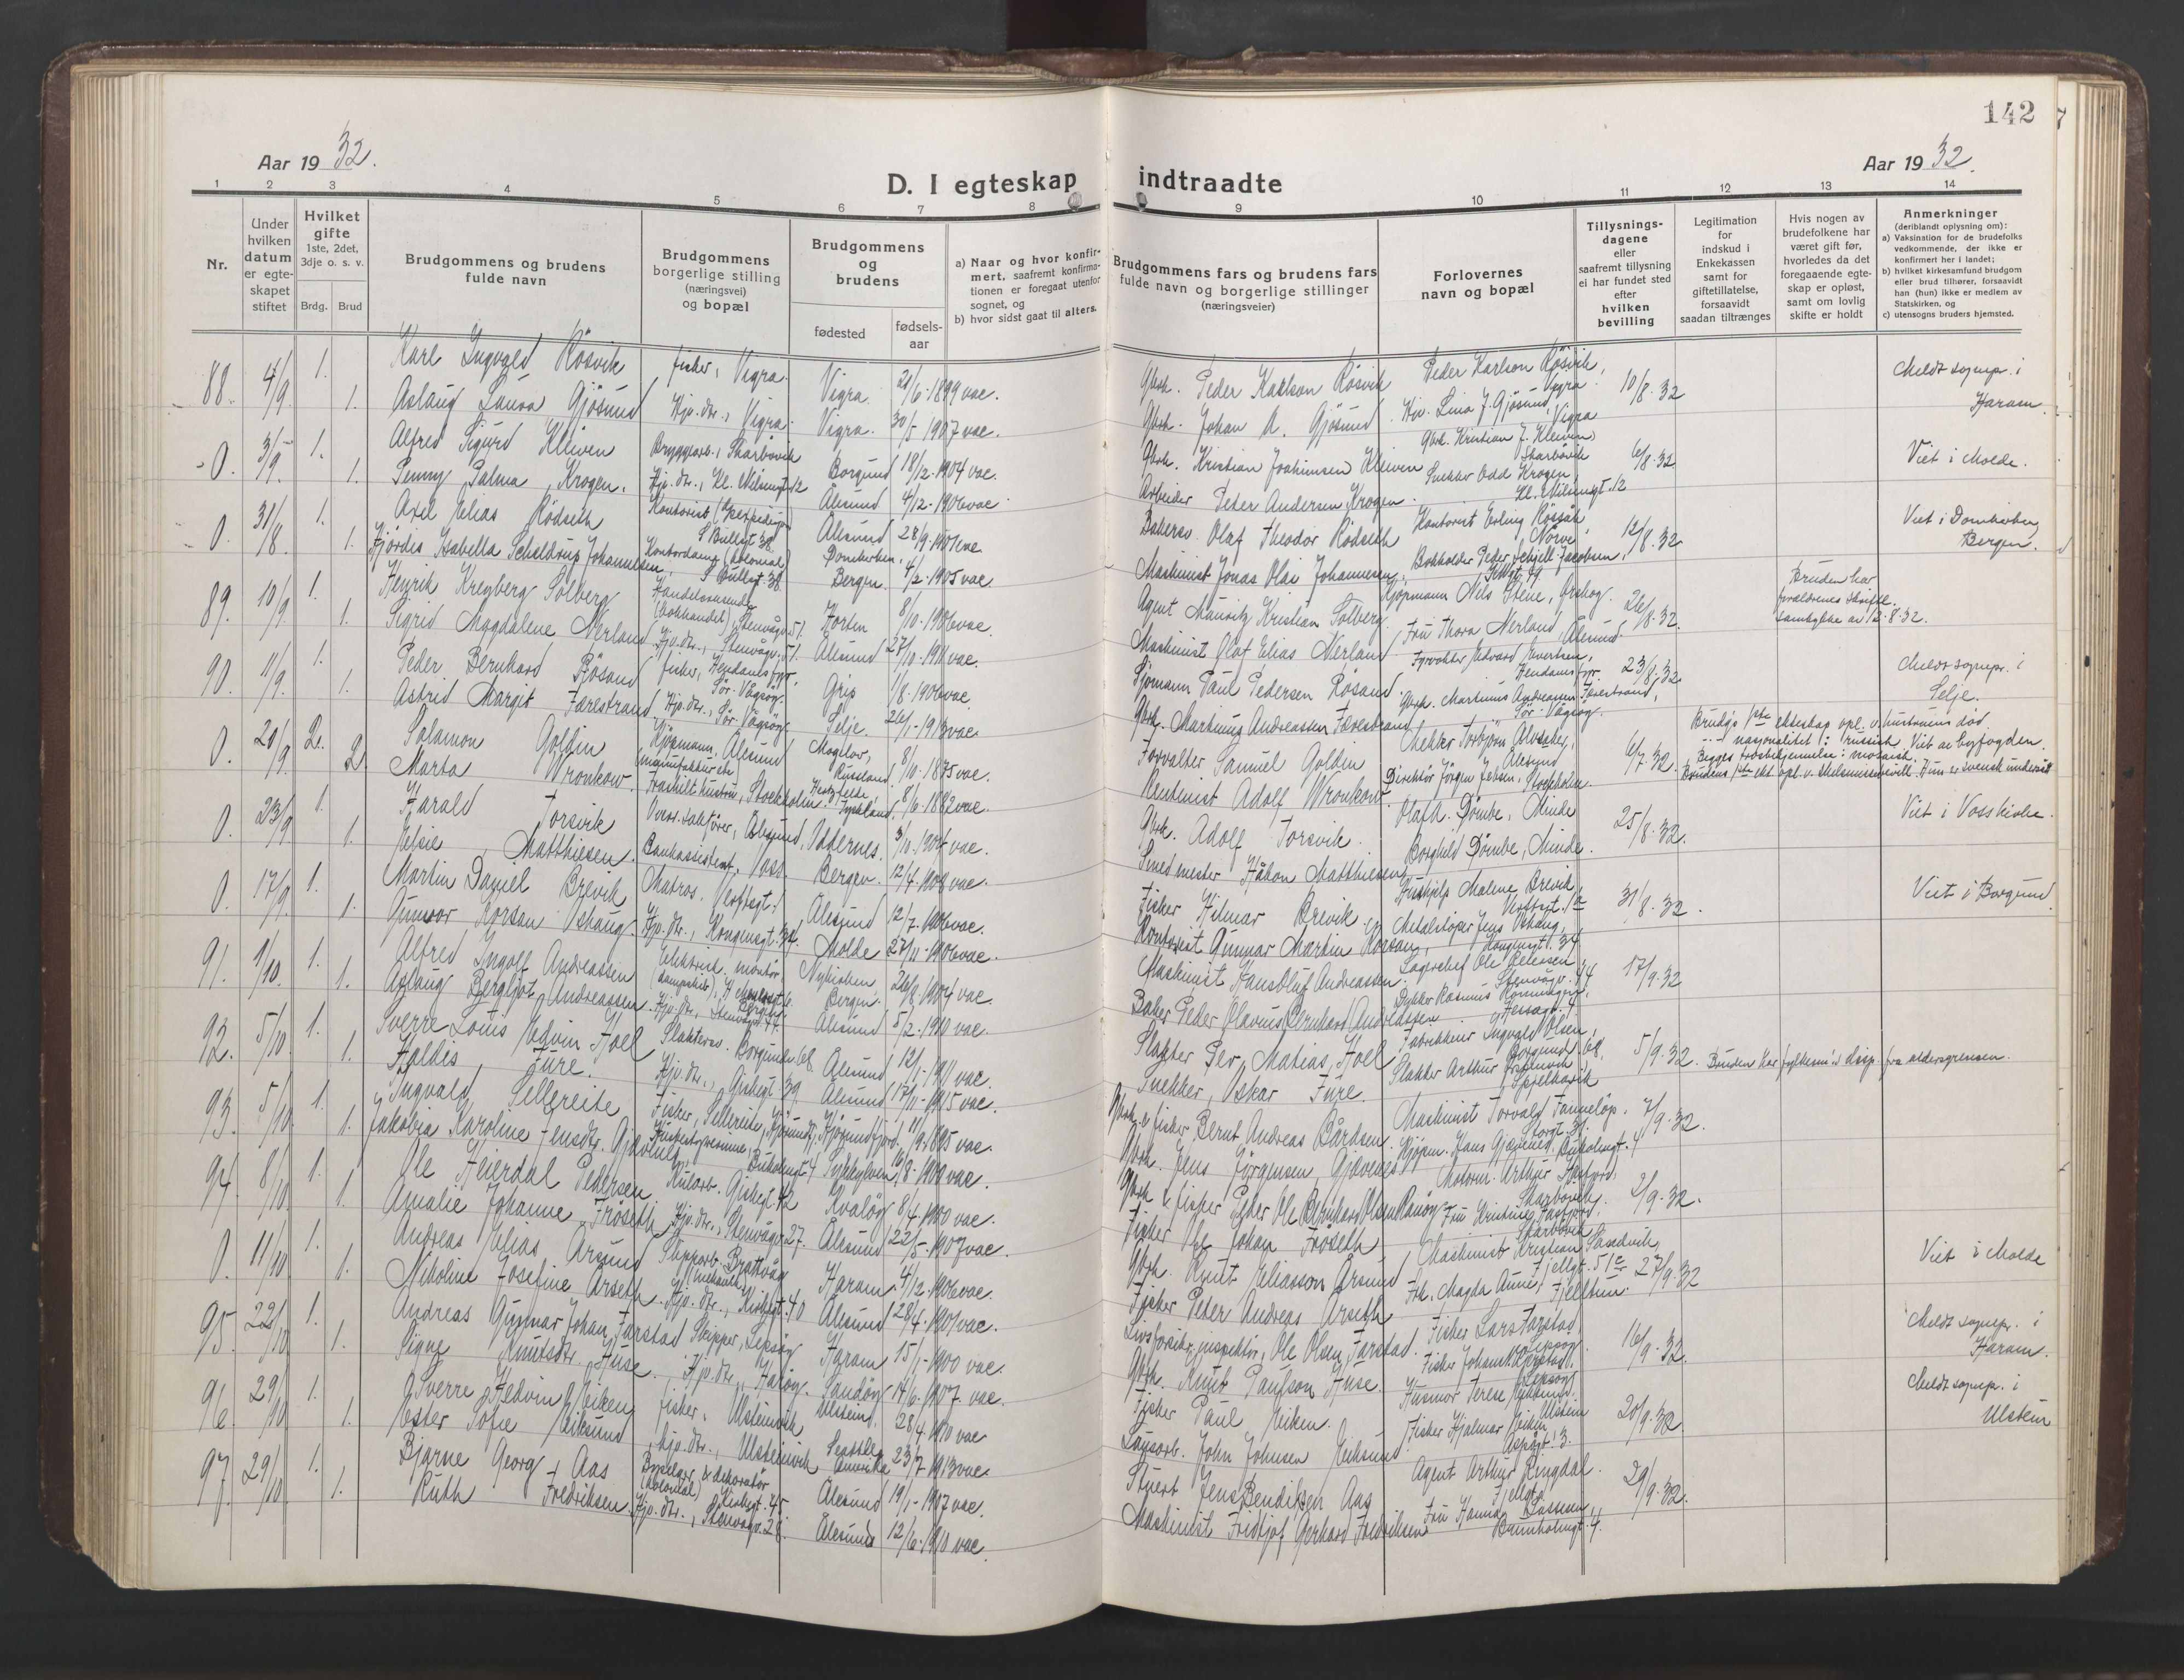 142
Aar 1932.
D. I egteskap indtraadte
Aar 1932.
1 2 3 4 5 6 7 8 9 10 11 12 13 14
Nr.
Under hvilken datum er egteskapet stiftet
Hvilket gifte 1ste, 2det, 3dje o. s. v.
Brdg. Brud
Brudgommens og brudens fulde navn
Brudgommens borgerlige stilling (næringsvei) og bopæl
Brudgommens og brudens
fødested
fødsels-aar
a) Naar og hvor konfirmert, saafremt konfirmationen er foregaat utenfor sognet, og
b) hvor sidst gaat til alters.
Brudgommens fars og brudens fars fulde navn og borgerlige stillinger (næringsveier)
Forlovernes navn og bopæl
Tillysningsdagene eller saafremt tillysning ei har fundet sted efter hvilken bevilling
Legitimation for indskud i Enkekassen samt for giftetillatelse, forsaavidt saadan tiltrænges
Hvis nogen av brudefolkene har været gift før, hvorledes da det foregaaende egteskap er opløst, samt om lovlig skifte er holdt
Anmerkninger (deriblandt oplysning om):
a) Vaksination for de brudefolks vedkommende, der ikke er konfirmert her i landet;
b) hvilket kirkesamfund brudgom eller brud tilhører, forsaavidt han (hun) ikke er medlem av Statskirken, og
c) utensogns bruders hjemsted.
88. 4/9. 1. Karl Ingvald Rösvik fisker, Vigra. Vigra 21/6-1899 vac. Gbrk. Peder Karlson Rösvik Peder Karlson Rösvik, Vigra. 10/8.32 Meldt sognepr. i
1. Aslaug Laura Gjösund Hjv. dtr., Vigra. Vigra. 30/5-1907 vac. Gbrk. Johan A. Gjösund. Hjv. Lina J. Gjösund, Vigra Haram.
0. 3/9. 1. Alfred Sigurd Kleiven Bryggearb., Skarbövik Borgund 18/12-1904 vac. Gbrk. Kristian Joakimsen Kleiven Gbrk. Kristian J. Kleiven, Skarbövik 6/8.32 Viet i Molde.
1. Penny Palma Krogen. Hjv. dtr., Kl. Nilsengt. 12 Ålesund 4/12-1906 vac. Arbeider Peder Andersen Krogen. Snekker Odd Krogen Kl. Nilsengt. 12
0. 31/8. 1. Axel Elias Rödseth Kontorist, S Bullsgt 38. Ålesund 28/9-1901 vac. Bakersv. Olaf Theodor Rödseth Kontorist Erling Nörve. 12/8.32 Viet i Domkirken,
1. Hjördis Isabella Scheldrup Johannesen, Kontordame (kolonial) S Bullsgt. 38. Domkirken, Bergen. 4/2-1905 vac. Maskinist Jonas Olai Johannesen, Bokholder Peder Schjell Jacobsen, Bergen.
89. 10/9. 1. Henrik Kregberg Solberg Handelsreisende (bokhandel), Stenvågv. 51. Horten 8/10-1906 vac. Agent Mauritz Kristian Solberg. Kjöpmann Nils Stene, Örskog. 26/8.32. Bruden har forældrenes skriftl. samtykke av 12-8-32.
1. Sigrid Magdalene Nerland Hjv. dtr., Stenvågv. 51. Ålesund 27/10-1911 vac. Maskinist Olaf Elias Nerland Fru Thora Nerland Ålesund.
90. 11/9. 1. Peder Bernhard Rösand fisker, Hendanes fyr, Sör-Vågsöy. Grip 1/8-1906 vac. Sjömann Paul Pedersen Rösand Fyrvokter Edvard Evertsen, Hendanes fyr. 23/8.32. Meldt sognepr. i
1. Astrid Margit Færestrand Hjv. dtr., Sör-Vågsöy. Selje. 26/1-1913 vac. Gbrk. Martinus Andreassen Færestrand Gbrk. Martinus Andreassen Færestrand, Sör-Vågsöy. Selje.
0. 20/9. 2. Salomon Goldin Kjöpmann, Ålesund (manufaktur etc) Mogilov, Russland. 8/10-1875 vac. Forvalter Samuel Goldin Mekker Torbjörn Alvsaker, Ålesund 6/7.32. Brudgs 1ste ekteskap opl. v. hustruens död.
nasjonalitet: russisk. Viet av byfogden.
2. Marta Wronkow. Fraskilt hustru, Stockholm. Tyskland. 8/6-1882 vac. Rentenist Adolf Wronkow. Direktör Jörgen Jensen, Stockholm. Begges trosbekjennelse: mosaisk.
Brudens 1ste ekt. opl. v. skilsmissebevill. Hun er svensk undersått
0. 23/9. 1. Harald Torsvik Overr. sakförer, Ålesund, Valdernes. 3/10-1904 vac. Gbrk. Adolf Torsvik. Olaf H. Dömbe, Minde 25/8.32. Viet i Voss kirke.
1. Elsie Matthiesen. Bankassistent, Voss. Bergen. 12/4-1908 vac. Smedmester Håkon Matthiesen, Borghild Dömbe, Minde.
0. 17/9. 1. Martin Daniel Brevik Matros, Verftsgt. 1 Ålesund 12/7-1906 vac. Fisker Hilmar Brevik Hushjelp Malene Brevik, Verftsgt. 1a 31/8.32. Viet i Borgund.
1. Gunvor Korsan Oshaug. Hjv. dtr., Kongensgt. 34. Molde 27/11-1906 vac. Kontorist Gunnar Martin Korsan, Metalstöper Jens Oshaug, Kongensgt. 34
91. 1/10. 1. Alfred Ingolf Andreassen Elektrisk montör (dampskib), Bergen. Nykirken, Bergen. 26/8-1904 vac. Maskinist Hans Oluf Andreassen. Lagerchef Ole Petersen, Stenvågv. 44 17/9.32
1. Aslaug Bergljot Andreassen. Hjv. dtr., Stenvågv. 44. Ålesund 5/2-1910 vac. Baker Peder Olavius Bernhard Andreassen Dykker Rasmus Rönningen, Hessagt. 4.
92. 5/10. 1. Sverre Louis Edvin Hoel Slaktersv. Borgundv. 68. Ålesund 12/1-1911 vac. Slagter Per Matias Hoel Fabrikkeier Ingvald Olsen, Borgundv. 68. 5/9.32. Bruden har fylkesm.'s disp. fra aldersgrensen.
1. Haldis Fure. Hjv. dtr., Giskegt 39. Ålesund 17/11-1915 vac. Snekker, Oskar Fure. Slakter Arthur Spjelkavik
93. 5/10. 1. Ingvald Sellereite Fisker, Sellereite, Hjörundfj. Hjörundfjord. 11/9-1895 vac. Gbrk. & fisker Bernt Andreas Bårdsen. Maskinist Torvald Tanneløp. Storgt. 31. 7/9.32.
1. Jakobia Karoline Jensdtr. Gjævenes Buholmgt. 4 Sykkylven. 16/8-1900 vac. Gbrk. Jens Jörgensen Gjævenes Kjöpm. Hans Gjævenes, Buholmgt. 4
94. 8/10. 1. Ole Heierdal Pedersen Kularb. Giskegt 42 Kvalöy 8/4-1900 vac. Gbrk & fisker Peder Ole Bernhard Olsen Ranöy Motorm. Arthur Fasfjord, Skarbövik. 2/9.32.
1. Amalie Johanne Fröseth Hjv. dtr., Stenvågv. 27. Ålesund 22/5-1907 vac. Fisker Ole Johan Fröseth Fru Kristine Fasfjord, Skarbövik
0. 11/10. 1. Andreas Elias Årsund Skipperb. Brattvåg Haram 4/12-1906 vac. Gbrk. Knut Eliasson Årsund Maskinist Kristian Sandvik, Fjellgt. 51a 27/9.32 Viet i Molde
1. Nikoline Josefine Årseth. Hjv. dtr., Kirkegt. 40 Ålesund 28/4-1901 vac. Fisker Peder Andreas Årseth Frk. Magda Aune, Fjelltun.
95. 22/10 1. Andreas Gunnar Johan Farstad Skipper, Lepsöy Haram 15/1-1900 vac. Livsforsikr. inspektör, Ole Olsen Farstad. Fisker Lars Farstad, Lepsöy. 16/9.32. Meldt sognepr. i
1. Signe Knutsdtr. Huse. Hjv. dtr., Haröy. Sandöy 14/6-1907. vac. Gbrk. Knut Paulson Huse. Fisker Johan Farstad, Lepsöy Haram.
96. 29/10. 1. Sverre Hedvin Eiken fisker, Ulsteinvik Ulstein. 28/4-1910 vac Fisker Paul Eiken. Husmor Terese Eiksund. Ulstein 20/9.32 Meldt sognepr. i
1. Ester Sofie Eiksund hjv. dtr., Ulsteinvik Seattle Amerika 23/7-1913 vac. Lausarb. John Johnsen Eiksund. Fisker Hjalmar Eiken, Aspögt. 3. Ulstein
97. 29/10. 1. Bjarne Georg Aas Byselger & dekoratör (kolonial) Kirkegt. 45 Ålesund 19/1-1907 vac. Stuert Jens Bendiksen Aas Agent Arthur Ringdal. Fjellgt. 29/9.32.
1. Ruth Fredriksen. Hjv. dtr., Stenvågv. 28. Ålesund 12/6-1910 vac. Maskinist Fridtjof Gerhard Fredriksen Fru Hanna Lassen, Bernholmgt. 4.